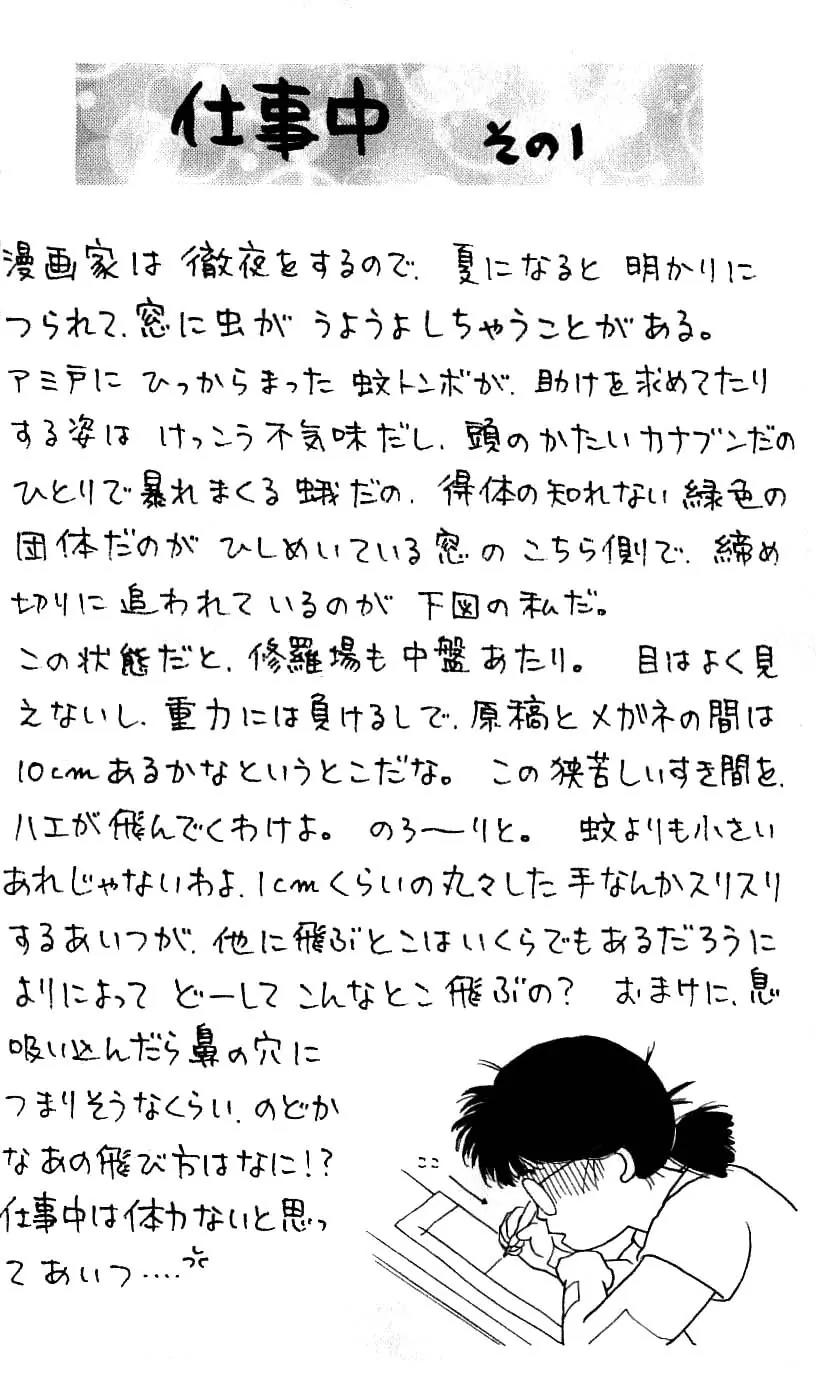 仕事中 その1
漫画家は 徹夜をするので、夏になると 明かりに
つられて、窓に虫が うようよしちゃうことがある。
アミ戸に ひっからまった 蚊トンボが、助けを求めてたり
する姿は けっこう不気味だし、頭のかたいカナブンだの
ひとりで暴れまくる蛾だの、得体の知れない緑色の
団体だのが ひしめいている窓の こちら側で、締め
切りに 追われているのが 下図の私だ。
この状態だと、修羅場も中盤あたり。 目はよく見
えないし、重力には負けるしで、原稿とメガネの間は
10cmあるかなというとこだな。 この狭苦しいすき間を、
ハエが飛んでくわけよ。 のろ〜〜りと。 蚊よりも小さい
あれじゃないわよ、1cmくらいの丸々した手なんかスリスリ
するあいつが、他に飛ぶとこはいくらでもあるだろうに
よりによって どーして こんなとこ飛ぶの? おまけに、息
吸い込んだら鼻の穴に
つまりそうなくらい、のどか
なあの飛び方はなに!?
仕事中は体力ないと思っ
てあいつ‥‥
ここ